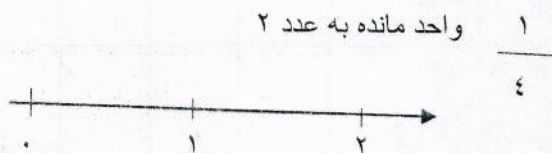 ۱ واحد مانده به عدد ۲
٤
۰ ۱ ۲